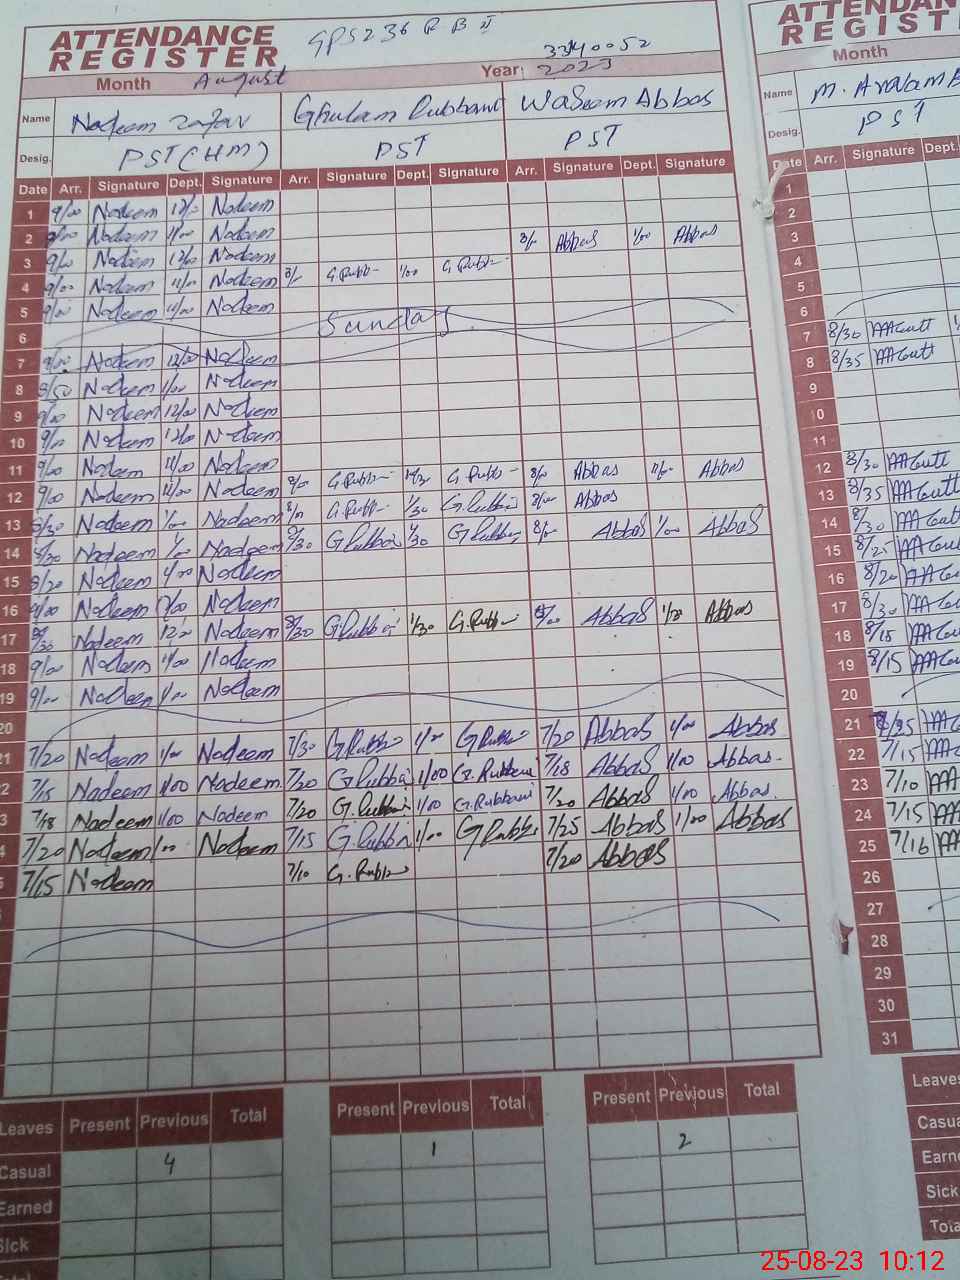 ATTENDANCE REGISTER
GPS 236 R B II
33410052
Month August Year 2023
Name Nadeem Zafar Ghulam Rubbani Waseem Abbas
Desig. PST (HM) PST PST
Date Arr. Signature Dept. Signature Arr. Signature Dept. Signature Arr. Signature Dept. Signature
1 9/00 Nadeem Nadeem
2 Nadeem Nadeem 8/ Abbas 1/00 Abbas
3 9/00 Nadeem 12/00 Nadeem
4 9/00 Nadeem 11/00 Nadeem 8/ G.Rubb 1/00 G.Rubb
5 9/00 Nadeem 11/00 Nadeem
6 Sunday
7 Nadeem 12/00 Nadeem
8 8/50 Nadeem 1/00 Nadeem
9 9/00 Nadeem 12/00 Nadeem
10 9/00 Nadeem 12/00 Nadeem
11 9/00 Nadeem 11/00 Nadeem
12 9/00 Nadeem Nadeem G.Rubb G.Rubb 8/00 Abbas Abbas
13 8/30 Nadeem 1/00 Nadeem G.Rubb 1/30 G.Rubbani 8/00 Abbas
14 8/30 Nadeem 1/00 Nadeem 8/30 G.Rubbani 1/30 G.Rubbani Abbas 1/00 Abbas
15 8/20 Nadeem 1/00 Nadeem
16 9/00 Nadeem Nadeem
17 8/30 Nadeem Nadeem 8/30 G.Rubbani 1/30 G.Rubbani 8/00 Abbas 1/00 Abbas
18 9/00 Nadeem 11/00 Nadeem
19 9/00 Nadeem 1/00 Nadeem
20
21 7/20 Nadeem 1/00 Nadeem 7/30 G.Rubbani 1/00 G.Rubbani 7/20 Abbas 1/00 Abbas
7/15 Nadeem 1/00 Nadeem 7/20 G.Rubbani 1/00 G.Rubbani 7/18 Abbas 1/00 Abbas.
7/18 Nadeem 1/00 Nadeem 7/20 G.Rubbani 1/00 G.Rubbani 7/20 Abbas 1/00 Abbas.
7/20 Nadeem 1/00 Nadeem 7/15 G.Rubbani 1/00 G.Rubbani 7/25 Abbas 1/00 Abbas
7/15 Nadeem 7/10 G.Rubbani 7/20 Abbas
Leaves Present Previous Total Present Previous Total Present Previous Total
Casual 4 1 2
Earned
Sick
Total
ATTENDAN
REGIST
Month
Name M.
Desig. PST
Date Arr. Signature Dept.
1
2
3
4
5
6
7 8/30
8 8/35
9
10
11
12 8/30
13 8/35
14 8/30
15 8/25
16 8/20
17 8/30
18 8/15
19 8/15
20
21 8/35
22 7/15
23 7/10
24 7/15
25 7/16
26
27
28
29
30
31
Leaves
Casua
Earn
Sick
Tota
25-08-23 10:12